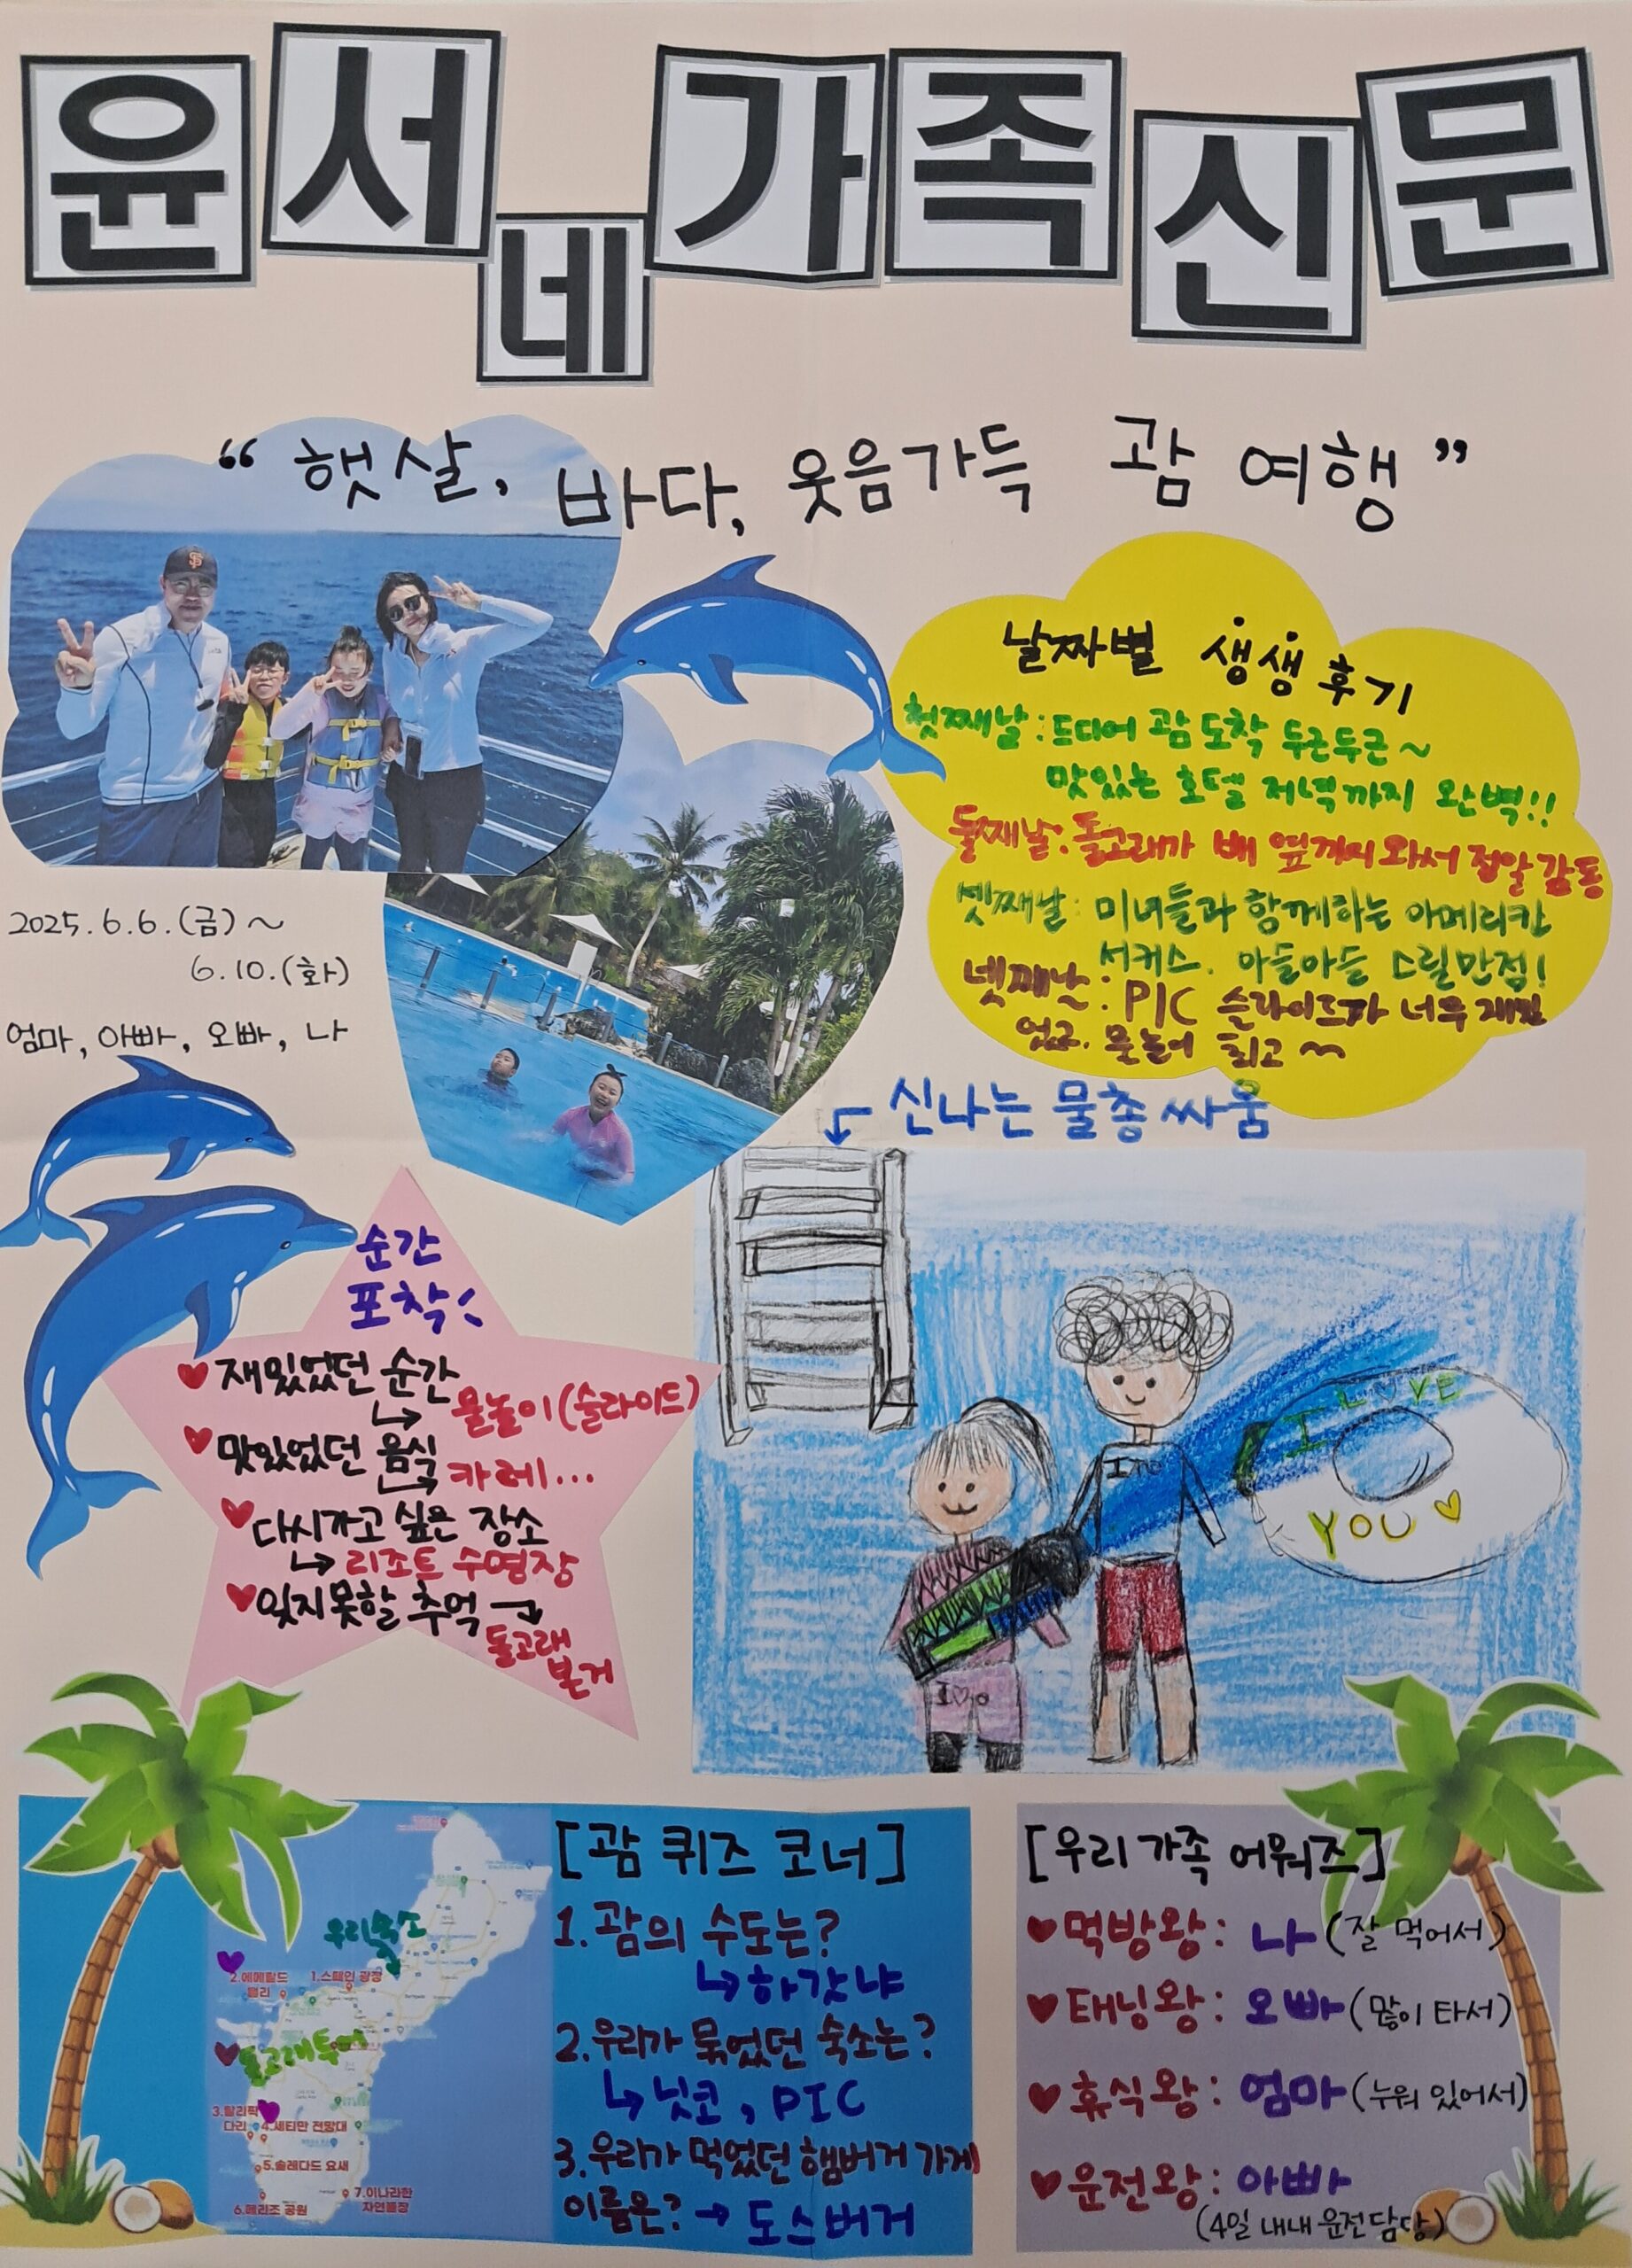 윤서네 가족신문
“ 햇살, 바다, 웃음가득 괌 여행 ”
2025. 6. 6. (금) ~
6. 10. (화)
엄마, 아빠, 오빠, 나
날짜별 생생 후기
첫째날 : 드디어 괌 도착 두근두근~
맛있는 호텔 저녁까지 완벽!!
둘째날: 돌고래가 배 옆까지 와서 정말 감동
셋째날 : 미녀들과 함께하는 아메리칸
서커스. 아들아들 스릴만점!
넷째날 : PIC 슬라이드가 너무 재밌
었군. 물놀이 최고 ~
← 신나는 물총싸움
I LOVE
YOU ♥
순간
포착!
♥ 재밌었던 순간
↳ 물놀이 (슬라이드)
♥ 맛있었던 음식
↳ 카레...
♥ 다시가고 싶은 장소
↳ 리조트 수영장
♥ 잊지못할 추억 →
돌고래
본거
우리숙소
2.에메랄드
밸리
1.스페인 광장
♥ 돌고래투어
3.탈리팍
다리
4.세티만 전망대
5.솔레다드 요새
6.메리조 공원
7.이나라한
자연풀장
[괌 퀴즈 코너]
1. 괌의 수도는?
↳ 하갓냐
2. 우리가 묵었던 숙소는?
↳ 닛코, PIC
3. 우리가 먹었던 햄버거 가게
이름은? → 도스버거
[우리 가족 어워즈]
♥ 먹방왕 : 나 (잘 먹어서)
♥ 태닝왕 : 오빠 (많이 타서)
♥ 휴식왕 : 엄마 (누워 있어서)
♥ 운전왕 : 아빠
(4일 내내 운전담당)